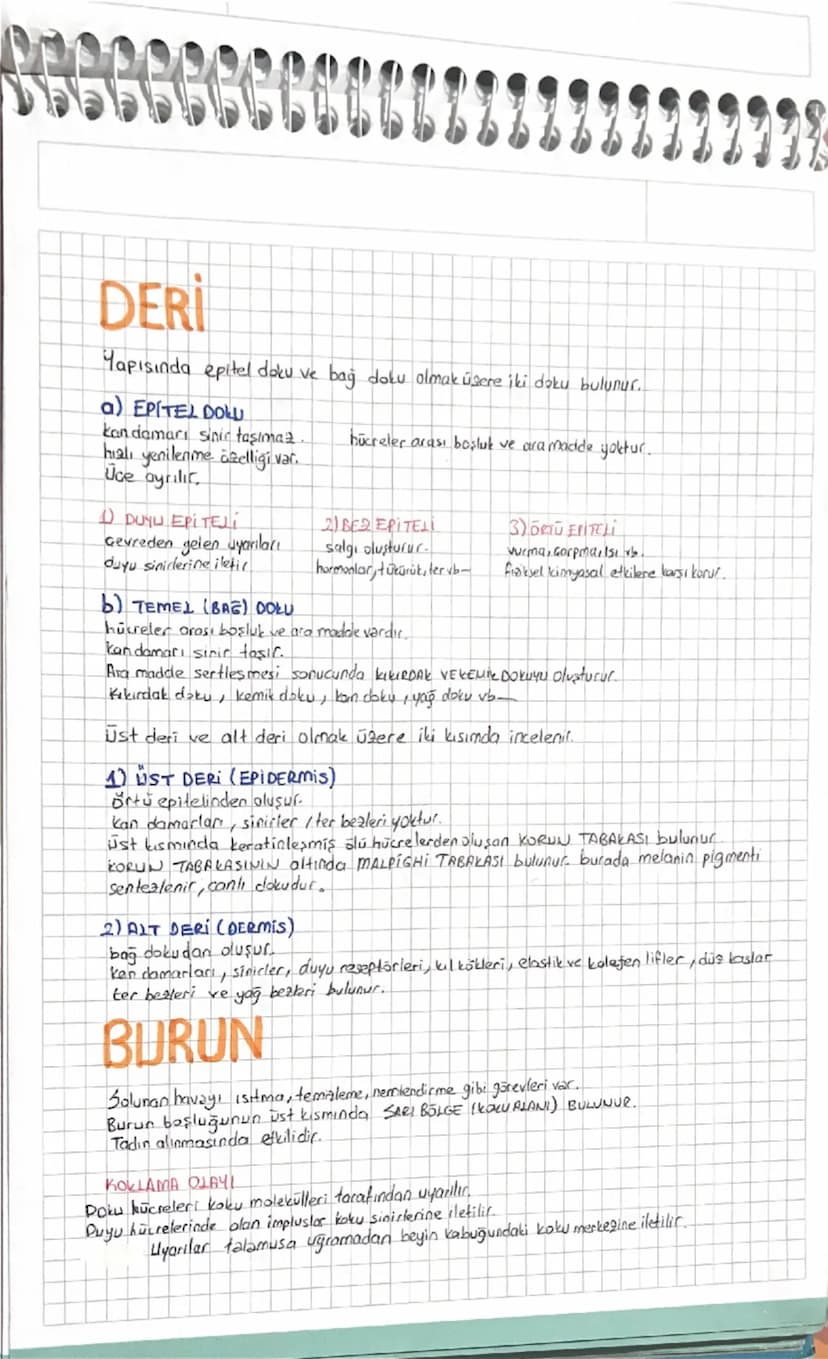 DERİ
Yapısında epitel doku ve bağ doku olmak üzere iki doku bulunur.
a) EPİTEL DOKU
kan damarı sinir taşımaz. hücreler arası boşluk ve ara madde yoktur.
hızlı yenilenme özelliği var.
Üçe ayrılır.
1) DUYU EPİTELİ
çevreden gelen uyarıları
duyu sinirlerine iletir
2) BEZ EPİTELİ
salgı oluşturur.
hormonlar, tükürük, ter vb—
3) ÖRTÜ EPİTELİ
vurma, çarpma, ısı vb.
fiziksel kimyasal etkilere karşı korur.
b) TEMEL (BAĞ) DOKU
hücreler arası boşluk ve ara madde vardır.
kan damarı sinir taşır.
Ara madde sertleşmesi sonucunda KIKIRDAK VE KEMİK DOKUYU oluşturur.
Kıkırdak doku, kemik doku, kan doku, yağ doku vb—
Üst deri ve alt deri olmak üzere iki kısımda incelenir.
1) ÜST DERİ (EPİDERMİS)
Örtü epitelinden oluşur.
Kan damarları, sinirler, ter bezleri yoktur.
Üst kısmında keratinleşmiş ölü hücrelerden oluşan KORUN TABAKASI bulunur
KORUN TABAKASININ altında MALPİGHİ TABAKASI bulunur. burada melanin pigmenti
sentezlenir, canlı dokudur.
2) ALT DERİ (DERMİS)
bağ dokudan oluşur.
kan damarları, sinirler, duyu reseptörleri, kıl kökleri, elastik ve kolajen lifler, düz kaslar
ter bezleri ve yağ bezleri bulunur.
BURUN
Solunan havayı ısıtma, temizleme, nemlendirme gibi görevleri var.
Burun boşluğunun üst kısmında SARI BÖLGE (KOKU ALANI) BULUNUR.
Tadın alınmasında etkilidir.
KOKLAMA OLAYI
Doku hücreleri koku molekülleri tarafından uyarılır.
Duyu hücrelerinde olan impluslar koku sinirlerine iletilir.
Uyarılar talamusa uğramadan beyin kabuğundaki koku merkezine iletilir.